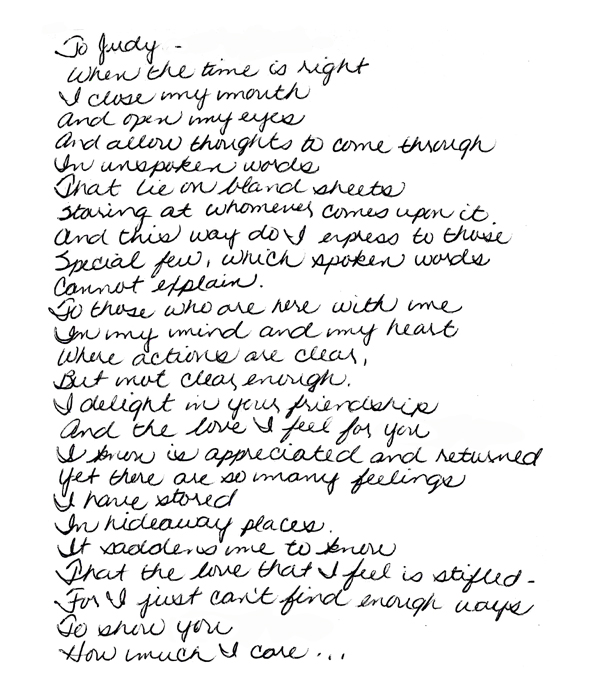 To Judy -
When the time is right
I close my mouth
And open my eyes
And allow thoughts to come through
In unspoken words
That lie on bland sheets
Staring at whomever comes upon it.
And this way do I express to those
Special few, which spoken words
Cannot explain.
To those who are here with me
In my mind and my heart
Where actions are clear,
But not clear enough.
I delight in your friendship
And the love I feel for you
I know is appreciated and returned
Yet there are so many feelings
I have stored
In hideaway places.
It saddens me to know
That the love that I feel is stifled -
For I just can't find enough ways
To show you
How much I care ...